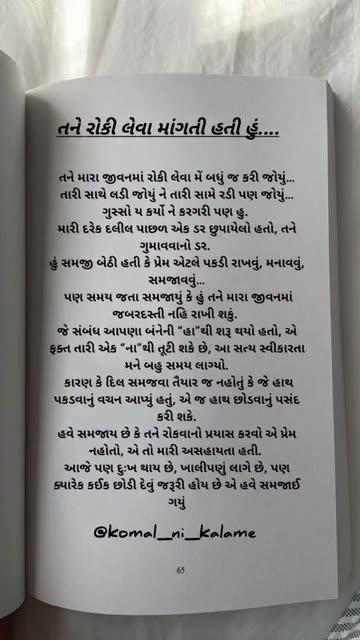 તને રોકી લેવા માંગતી હતી હું....
તને મારા જીવનમાં રોકી લેવા મેં બધું જ કરી જોયું...
તારી સાથે લડી જોયું ને તારી સામે રડી પણ જોયું...
ગુસ્સો ય કર્યો ને કરગરી પણ હુ.
મારી દરેક દલીલ પાછળ એક ડર છુપાયેલો હતો, તને
ગુમાવવાનો ડર.
હું સમજી બેઠી હતી કે પ્રેમ એટલે પકડી રાખવું, મનાવવું,
સમજાવવું...
પણ સમય જતા સમજાયું કે હું તને મારા જીવનમાં
જબરદસ્તી નહિ રાખી શકું.
જે સંબંધ આપણા બંનેની "હા"થી શરૂ થયો હતો, એ
ફક્ત તારી એક "ના"થી તૂટી શકે છે, આ સત્ય સ્વીકારતા
મને બહુ સમય લાગ્યો.
કારણ કે દિલ સમજવા તૈયાર જ નહોતું કે જે હાથ
પકડવાનું વચન આપ્યું હતું, એ જ હાથ છોડવાનું પસંદ
કરી શકે.
હવે સમજાય છે કે તને રોકવાનો પ્રયાસ કરવો એ પ્રેમ
નહોતો, એ તો મારી અસહાયતા હતી.
આજે પણ દુઃખ થાય છે, ખાલીપણું લાગે છે, પણ
ક્યારેક કઈક છોડી દેવું જરૂરી હોય છે એ હવે સમજાઈ
ગયું
@komal_ni_kalame
65